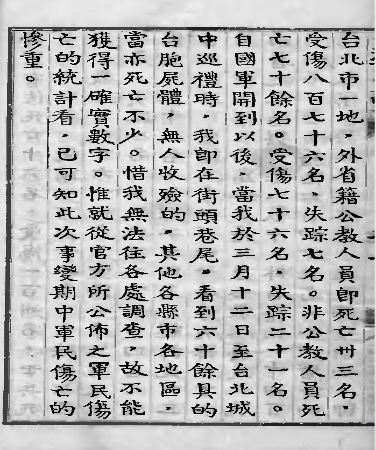 台北市一地，外省籍公教人員卽死亡卅三名，
受傷八百七十六名，失踪七名。非公教人員死
亡七十餘名。受傷七十六名，失踪二十一名。
自國軍開到以後，當我於三月十二日至台北城
中巡禮時，我卽在街頭巷尾，看到六十餘具的
台胞屍體，無人收殮的，其他各縣市各地區，
當亦死亡不少。惜我無法往各處調查，故不能
獲得一確實數字。惟就從官方所公佈之軍民傷
亡的統計看，已可知此次事變期中軍民傷亡的
慘重。